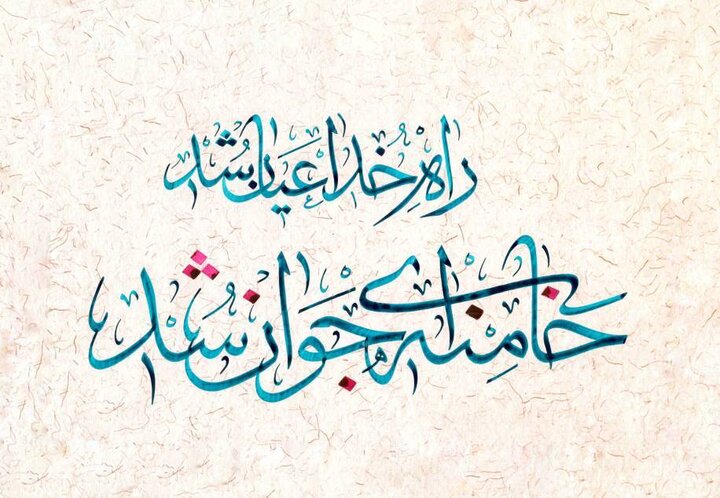 راهِ خدا عیان بشد
خامنه‌ای جوان شد